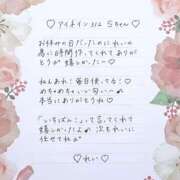 ♡アイメイン 312 Sちゃん♡
お休みの日だったのにれいの
為に時間作ってくれてありが
とうが嬉しかった〜♡
れんあれ！毎日使ってる♡
めちゃめちゃいい匂い〜
本当にありがとうね
「いちばん♡」って言ってくれて
嬉しかったよ♪ 次もれいに
任せてね♂
♡れい♡